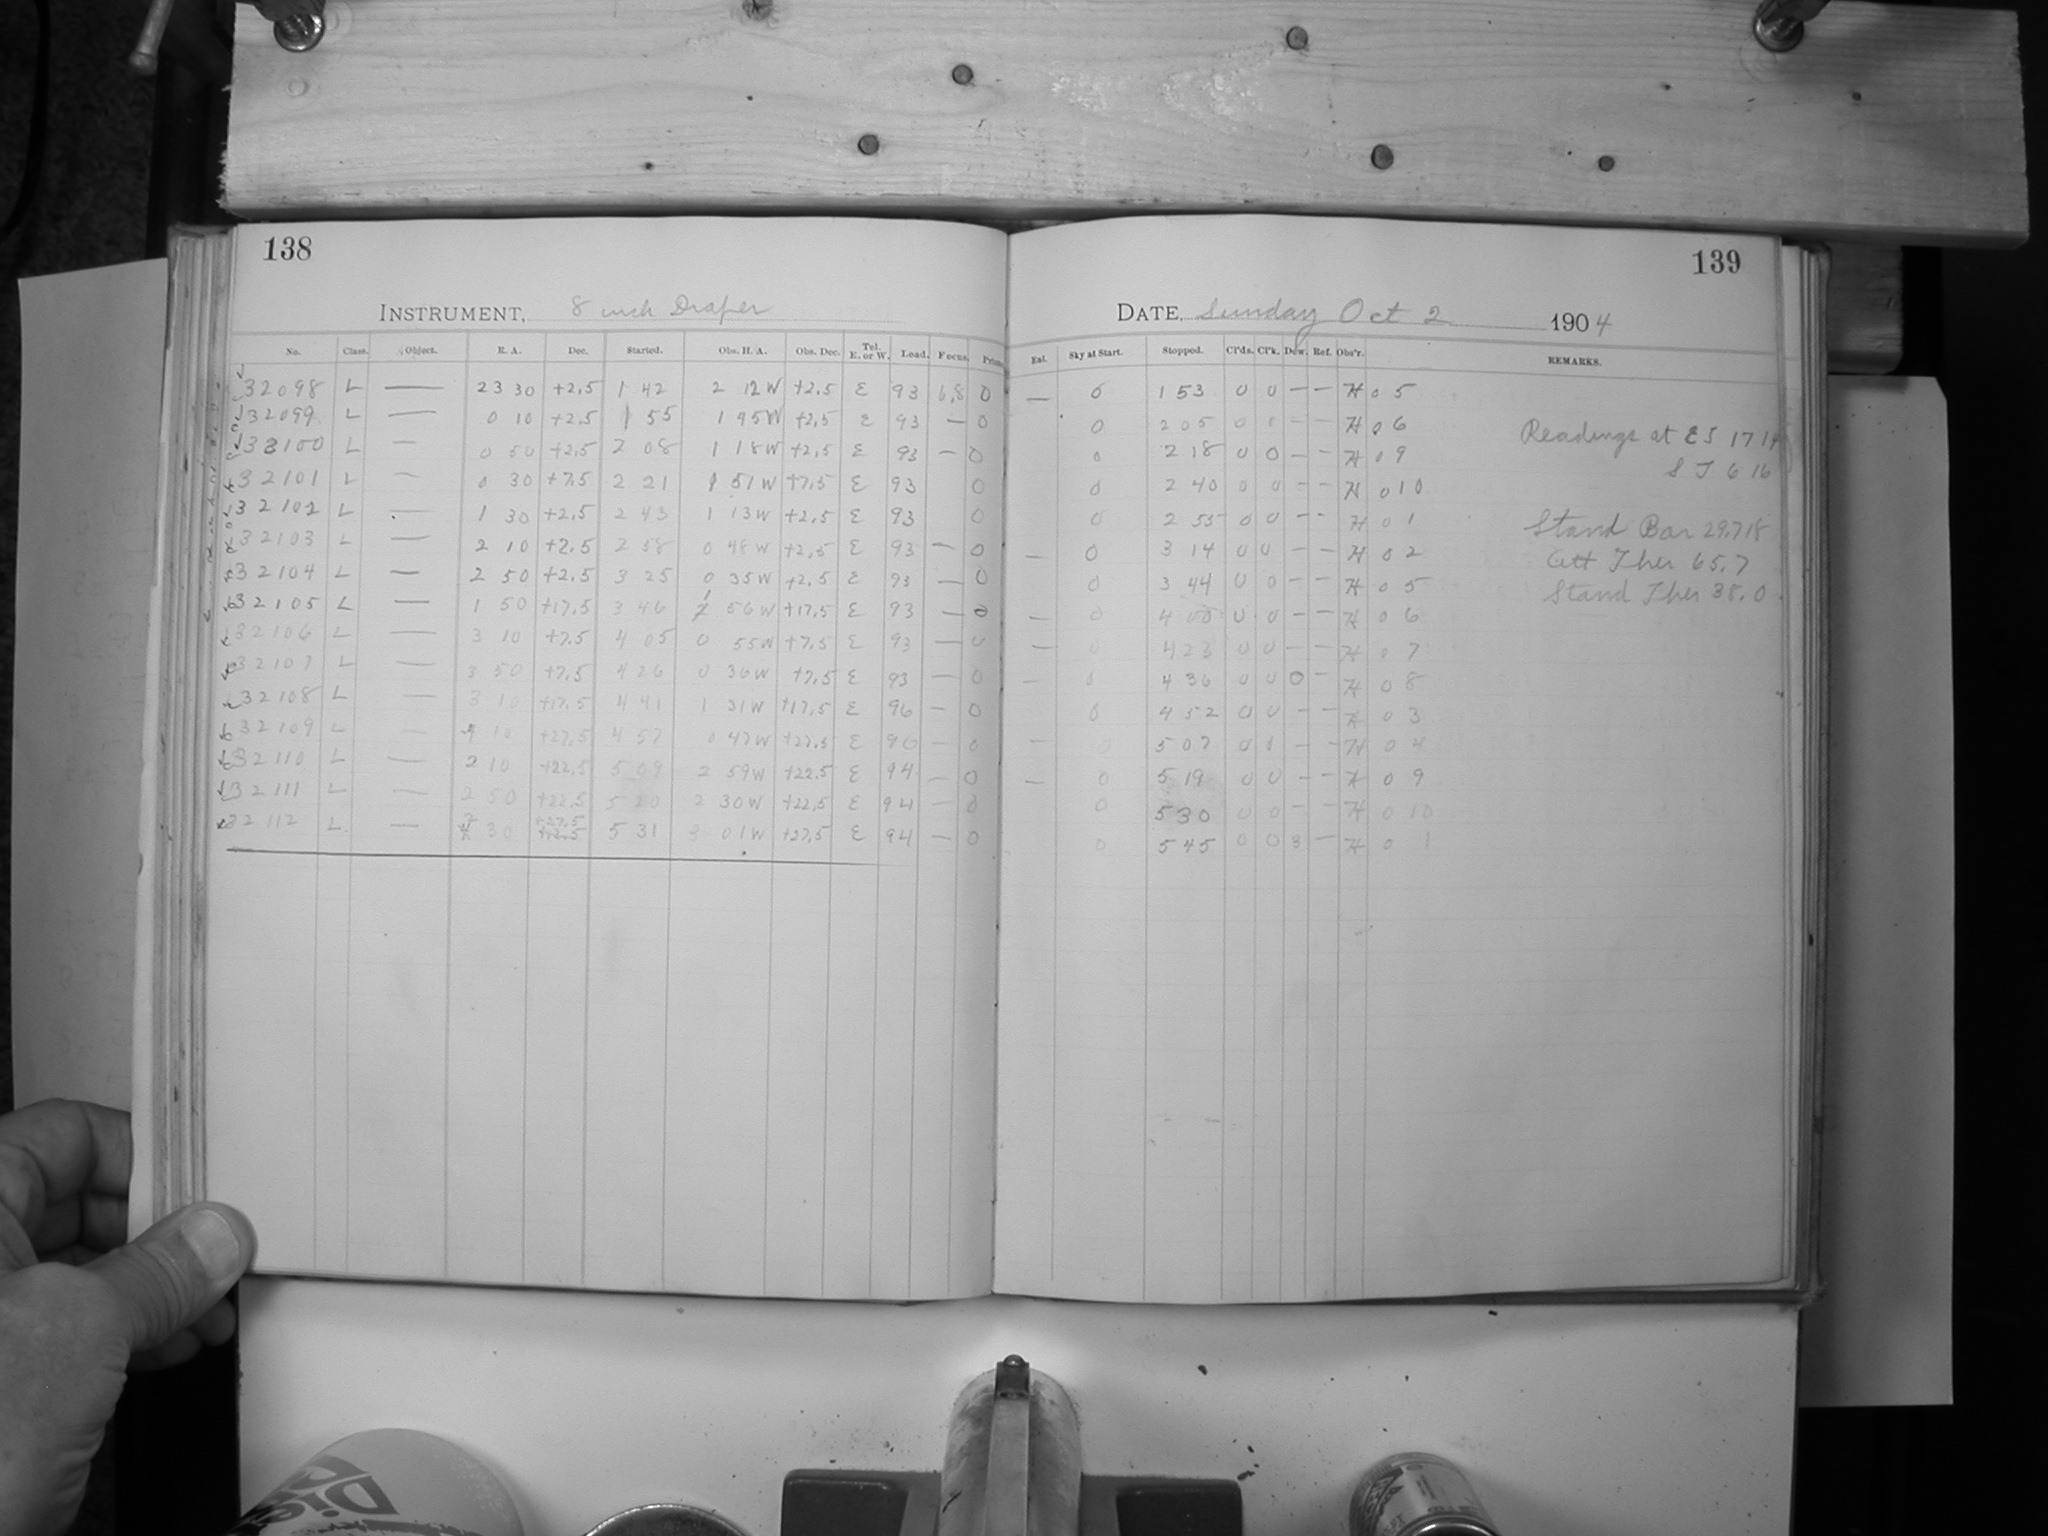 138
INSTRUMENT, 8 inch Draper
No. Class. Object. R. A. Dec. Started. Obs. H. A. Obs. Dec. Tel. E. or W. Lead. Focus. Prism
32098 L — 23 30 +2.5 1 42 2 12W +2.5 E 93 6.8 0
32099 L — 0 10 +2.5 1 55 1 45W +2.5 E 93 — 0
32100 L — 0 50 +2.5 2 08 1 18W +2.5 E 93 — 0
32101 L — 0 30 +7.5 2 21 1 51W +7.5 E 93 0
32102 L — 1 30 +2.5 2 43 1 13W +2.5 E 93 0
32103 L — 2 10 +2.5 2 58 0 48W +2.5 E 93 — 0
32104 L — 2 50 +2.5 3 25 0 35W +2.5 E 93 — 0
32105 L — 1 50 +17.5 3 46 1 56W +17.5 E 93 — 0
32106 L — 3 10 +7.5 4 05 0 55W +7.5 E 93 — 0
32107 L — 3 50 +7.5 4 26 0 36W +7.5 E 93 — 0
32108 L — 3 10 +17.5 4 41 1 31W +17.5 E 96 — 0
32109 L — 4 10 +27.5 4 57 0 47W +27.5 E 96 — 0
32110 L — 2 10 +22.5 5 09 2 59W +22.5 E 94 — 0
32111 L — 2 50 +22.5 5 20 2 30W +22.5 E 94 — 0
32112 L — 2 30 +27.5 5 31 3 01W +27.5 E 94 — 0
139
DATE, Sunday Oct 2 1904
Est. Sky at Start. Stopped. Cl'ds. Cl'k. Dew. Ref. Obs'r. REMARKS.
— 0 1 53 0 0 — — H 0 5
0 2 05 0 — — H 0 6
0 2 18 0 0 — — H 0 9
0 2 40 0 0 — — H 0 10
0 2 55 0 0 — — H 0 1
— 0 3 14 0 0 — — H 0 2
0 3 44 0 0 — — H 0 5
— 0 4 00 0 0 — — H 0 6
— 0 4 23 0 0 — — H 0 7
— 0 4 36 0 0 0 — H 0 8
0 4 52 0 0 — — H 0 3
— 0 5 07 0 — — H 0 4
— 0 5 19 0 0 — — H 0 9
0 5 30 0 0 — H 0 10
0 5 45 0 0 3 — H 0 1
Readings at E S 17 14
S T 6 16
Stand Bar 29.718
Att Ther 65.7
Stand Ther 38.0